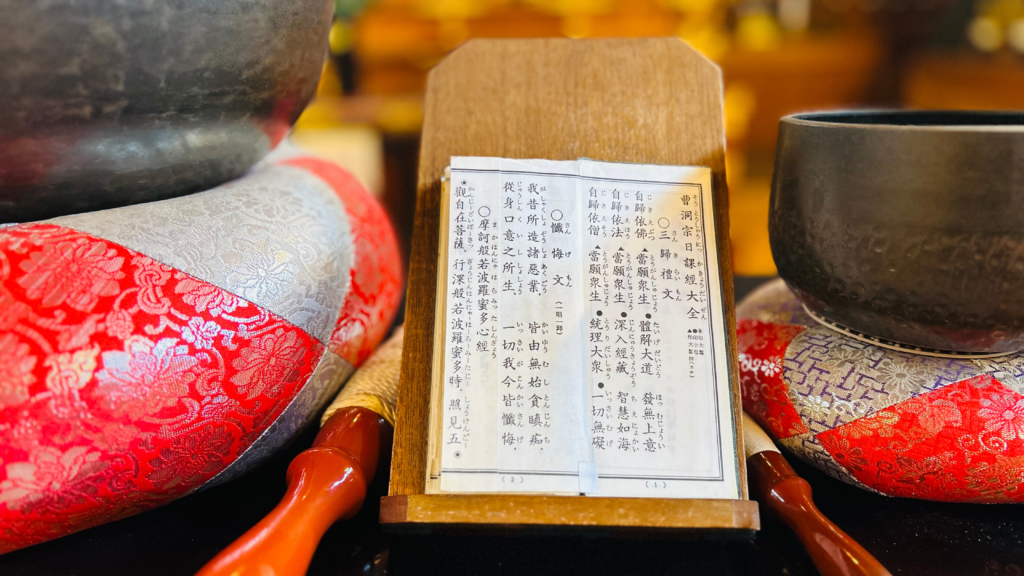 曹洞宗日課經大全
○三歸禮文
自歸依佛▲當願衆生●體解大道 發無上意
自歸依法▲當願衆生●深入經藏 智慧如海
自歸依僧▲當願衆生●統理大衆●一切無礙
(1)
○懺悔文
我昔所造諸惡業、皆由無始貪瞋痴、
從身口意之所生、一切我今皆懺悔、
○摩訶般若波羅蜜多心經
◉觀自在菩薩、行深般若波羅蜜多時、照見五◉
(2)